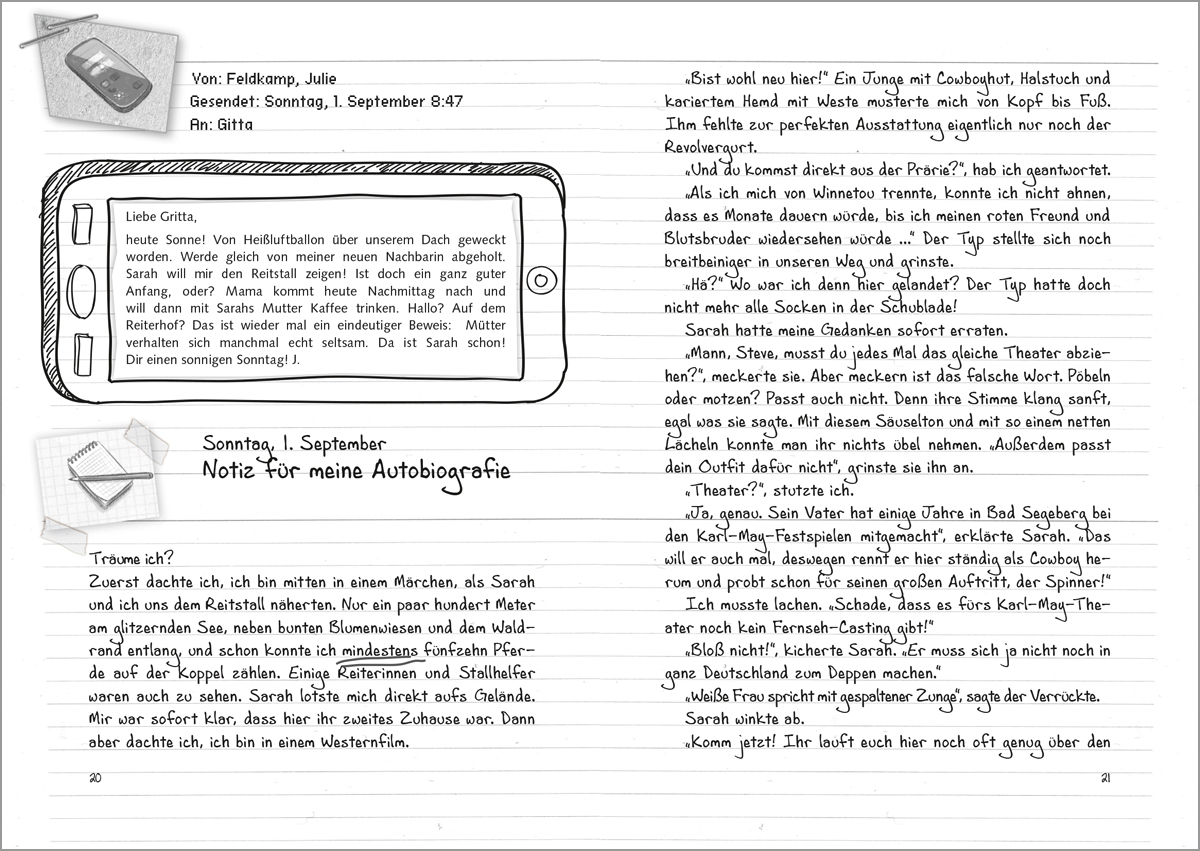 Von: Feldkamp, Julie
Gesendet: Sonntag, 1. September 8:47
An: Gitta
Liebe Gritta,
heute Sonne! Von Heißluftballon über unserem Dach geweckt
worden. Werde gleich von meiner neuen Nachbarin abgeholt.
Sarah will mir den Reitstall zeigen! Ist doch ein ganz guter
Anfang, oder? Mama kommt heute Nachmittag nach und
will dann mit Sarahs Mutter Kaffee trinken. Hallo? Auf dem
Reiterhof? Das ist wieder mal ein eindeutiger Beweis: Mütter
verhalten sich manchmal echt seltsam. Da ist Sarah schon!
Dir einen sonnigen Sonntag! J.
Sonntag, 1. September
Notiz für meine Autobiografie
Träume ich?
Zuerst dachte ich, ich bin mitten in einem Märchen, als Sarah
und ich uns dem Reitstall näherten. Nur ein paar hundert Meter
am glitzernden See, neben bunten Blumenwiesen und dem Wald-
rand entlang, und schon konnte ich mindestens fünfzehn Pfer-
de auf der Koppel zählen. Einige Reiterinnen und Stallhelfer
waren auch zu sehen. Sarah lotste mich direkt aufs Gelände.
Mir war sofort klar, dass hier ihr zweites Zuhause war. Dann
aber dachte ich, ich bin in einem Westernfilm.
20
„Bist wohl neu hier!“ Ein Junge mit Cowboyhut, Halstuch und
kariertem Hemd mit Weste musterte mich von Kopf bis Fuß.
Ihm fehlte zur perfekten Ausstattung eigentlich nur noch der
Revolvergurt.
„Und du kommst direkt aus der Prärie?“, hab ich geantwortet.
„Als ich mich von Winnetou trennte, konnte ich nicht ahnen,
dass es Monate dauern würde, bis ich meinen roten Freund und
Blutsbruder wiedersehen würde ...“ Der Typ stellte sich noch
breitbeiniger in unseren Weg und grinste.
„Hä?“ Wo war ich denn hier gelandet? Der Typ hatte doch
nicht mehr alle Socken in der Schublade!
Sarah hatte meine Gedanken sofort erraten.
„Mann, Steve, musst du jedes Mal das gleiche Theater abzie-
hen?“, meckerte sie. Aber meckern ist das falsche Wort. Pöbeln
oder motzen? Passt auch nicht. Denn ihre Stimme klang sanft,
egal was sie sagte. Mit diesem Säuselton und mit so einem netten
Lächeln konnte man ihr nichts übel nehmen. „Außerdem passt
dein Outfit dafür nicht“, grinste sie ihn an.
„Theater?“, stutzte ich.
„Ja, genau. Sein Vater hat einige Jahre in Bad Segeberg bei
den Karl-May-Festspielen mitgemacht“, erklärte Sarah. „Das
will er auch mal, deswegen rennt er hier ständig als Cowboy he-
rum und probt schon für seinen großen Auftritt, der Spinner!“
Ich musste lachen. „Schade, dass es fürs Karl-May-The-
ater noch kein Fernseh-Casting gibt!“
„Bloß nicht!“, kicherte Sarah. „Er muss sich ja nicht noch in
ganz Deutschland zum Deppen machen.“
„Weiße Frau spricht mit gespaltener Zunge“, sagte der Verrückte.
Sarah winkte ab.
„Komm jetzt! Ihr lauft euch hier noch oft genug über den
21